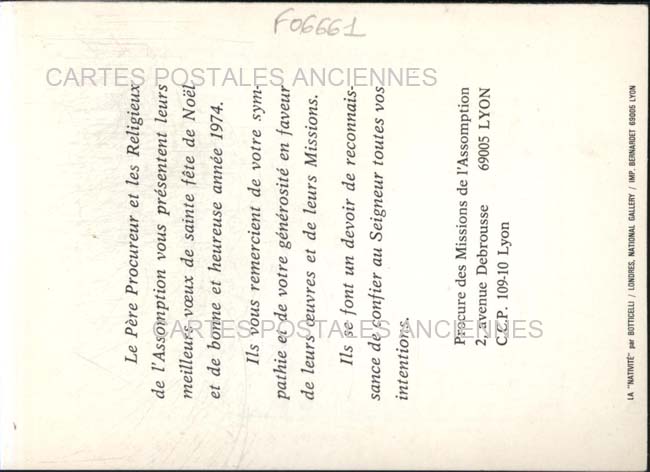 F06661
CARTES POSTALES ANCIENNES
Le Père Procureur et les Religieux
de l'Assomption vous présentent leurs
meilleurs vœux de sainte fête de Noël
et de bonne et heureuse année 1974.
Ils vous remercient de votre sym-
pathie et de votre générosité en faveur
de leurs œuvres et de leurs Missions.
Ils se font un devoir de reconnais-
sance de confier au Seigneur toutes vos
intentions.
Procure des Missions de l'Assomption
2, avenue Debrousse 69005 LYON
C.C.P. 109-10 Lyon
LA "NATIVITÉ" par BOTTICELLI / LONDRES, NATIONAL GALLERY / IMP. BERNARDET 69005 LYON
CARTES POSTALES ANCIENNES